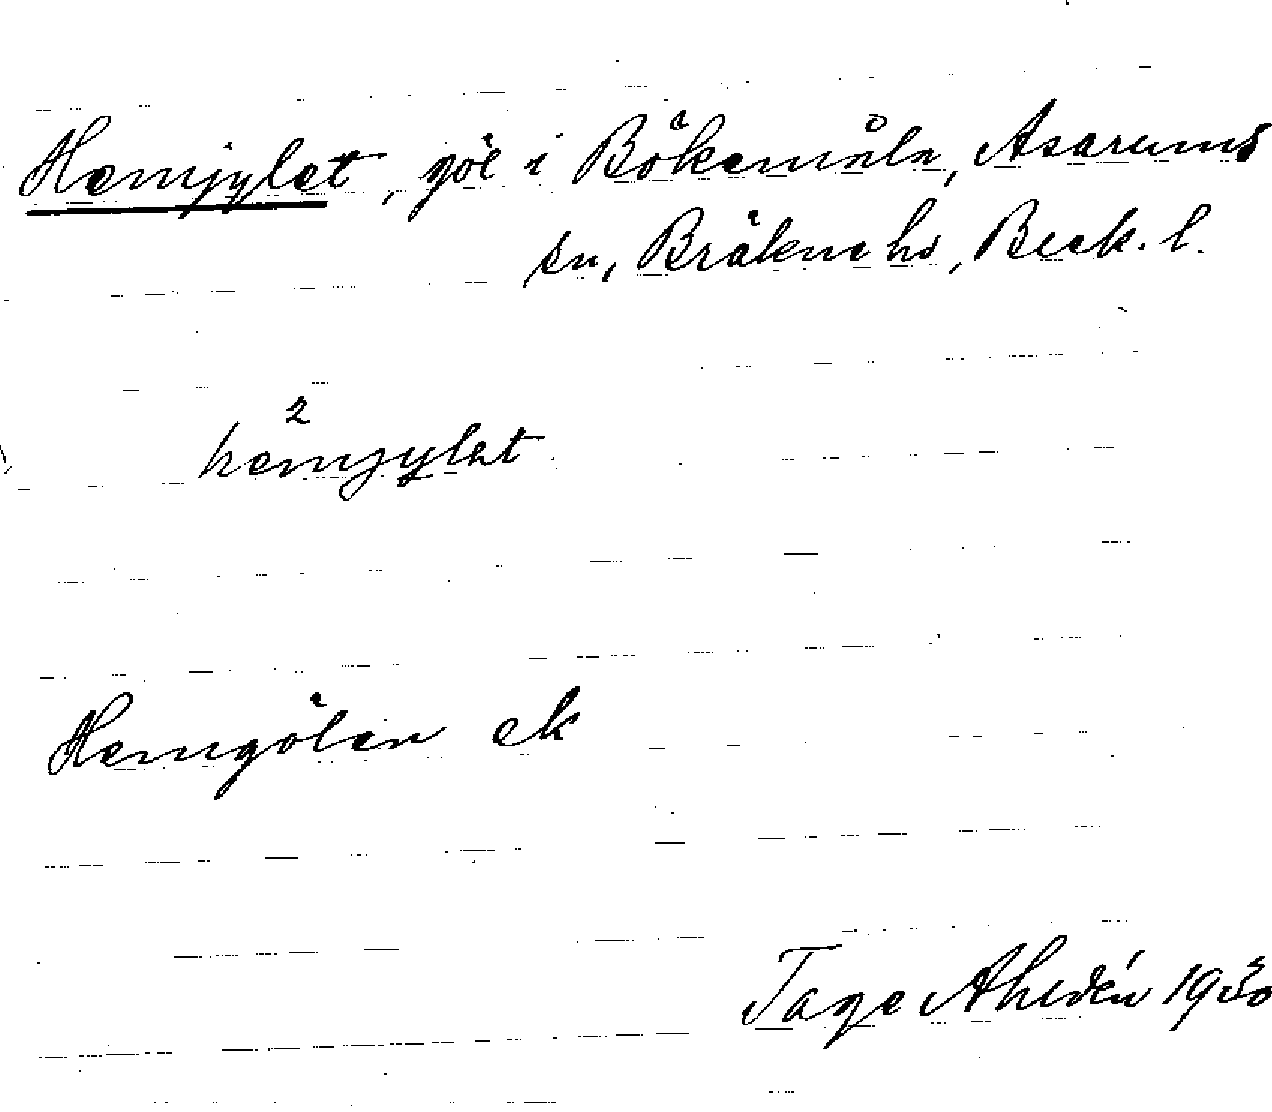 Hemjylet, göl i Bökemåla, Asarums
sn, Bräkne hd, Blek. l.
2
hemjylet
Hemgölen ek
Tage Ahldén 1930